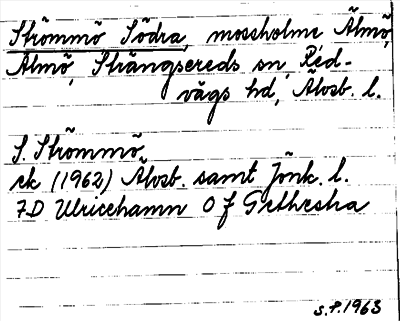 Strömmö Södra, mossholme Älmö,
Älmö, Strängsereds sn, Red-
vägs hd, Älvsb. l.
S. Strömmö
ek (1962) Älvsb. samt Jönk. l.
7D Ulricehamn 0 f Grethestra
S.P. 1963